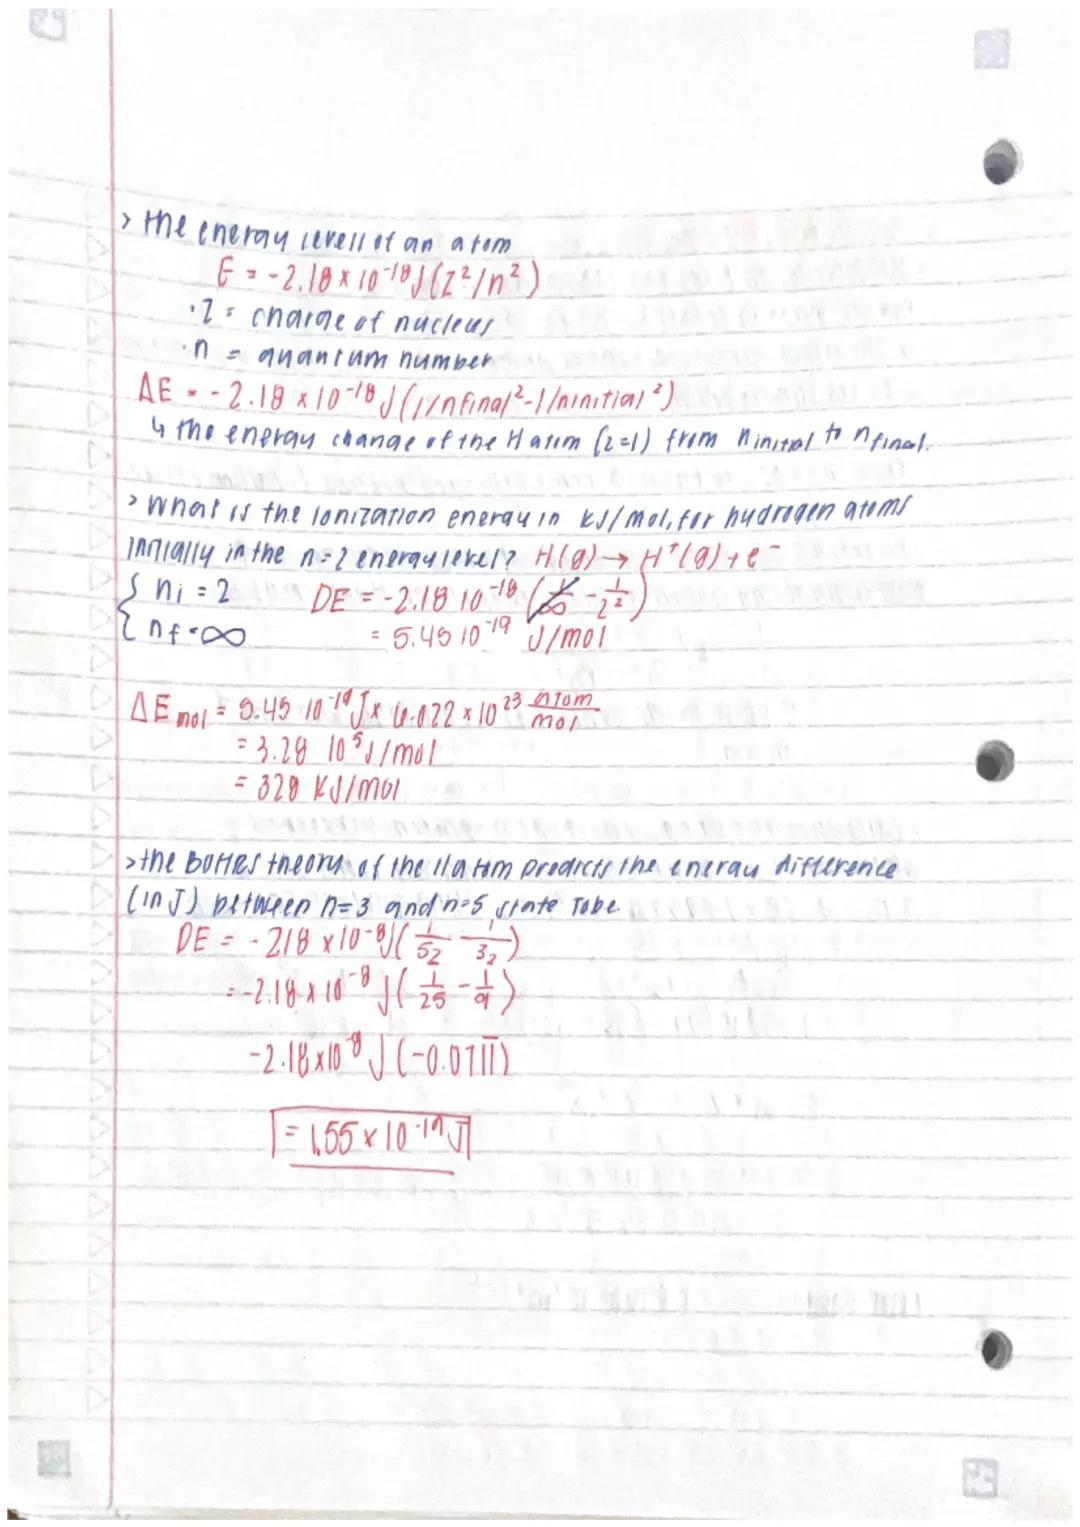 > the energy levell of an atom
E = -2.18 x 10^-18 J (Z²/n²)
·Z = charge of nucleus
·n = quantum number
ΔE = -2.18 x 10^-18 J (1/nfinal² - 1/ninitial²)
↳ the energy change of the H atom (z=1) from ninitial to nfinal.
> What is the ionization energy in kJ/mol, for hydrogen atoms
initially in the n=2 energy level? H(g) → H⁺(g) + e⁻
{ ni = 2 DE = -2.18 10^-18 (1/∞ - 1/2²)
{ nf = ∞ = 5.45 10^-19 J/mol
ΔE mol = 5.45 10^-19 J x 6.022 x 10^23 atom/mol
= 3.28 10^5 J/mol
= 328 KJ/mol
> the Bohrs theory of the H atom predicts the energy difference
(in J) between n=3 and n=5 state to be
DE = -218 x10^-8 J (1/52 - 1/32)
= -2.18 x 10^-8 J (1/25 - 1/9)
-2.18x10^-8 J (-0.0711)
= 1.55 x 10^-19 J